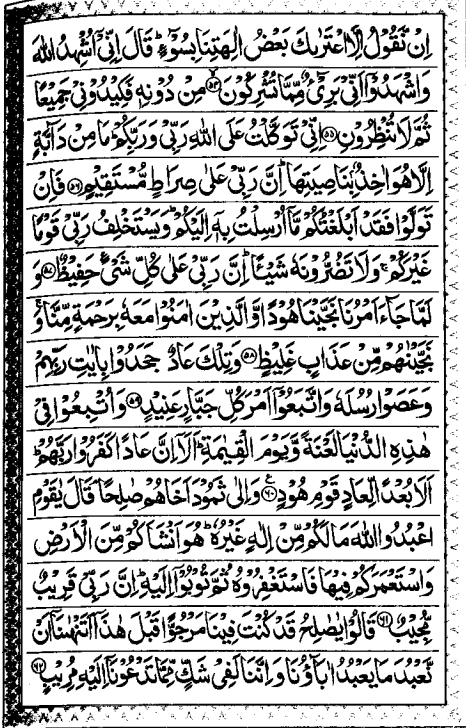 اِنْ نَّقُوْلُ اِلَّا اعْتَرٰىكَ بَعْضُ اٰلِهَتِنَا بِسُوْٓءٍ ؕ قَالَ اِنِّیْۤ اُشْهِدُ اللّٰهَ
وَ اشْهَدُوْۤا اَنِّیْ بَرِیْٓءٌ مِّمَّا تُشْرِكُوْنَ ۙ﴿۵۴﴾ مِنْ دُوْنِهٖ فَكِیْدُوْنِیْ جَمِیْعًا
ثُمَّ لَا تُنْظِرُوْنِ ﴿۵۵﴾ اِنِّیْ تَوَكَّلْتُ عَلَی اللّٰهِ رَبِّیْ وَ رَبِّكُمْ ؕ مَا مِنْ دَآبَّةٍ
اِلَّا هُوَ اٰخِذٌۢ بِنَاصِیَتِهَا ؕ اِنَّ رَبِّیْ عَلٰی صِرَاطٍ مُّسْتَقِیْمٍ ﴿۵۶﴾ فَاِنْ
تَوَلَّوْا فَقَدْ اَبْلَغْتُكُمْ مَّاۤ اُرْسِلْتُ بِهٖۤ اِلَیْكُمْ ؕ وَ یَسْتَخْلِفُ رَبِّیْ قَوْمًا
غَیْرَكُمْ ۚ وَ لَا تَضُرُّوْنَهٗ شَیْـًٔا ؕ اِنَّ رَبِّیْ عَلٰی كُلِّ شَیْءٍ حَفِیْظٌ ﴿۵۷﴾ وَ
لَمَّا جَآءَ اَمْرُنَا نَجَّیْنَا هُوْدًا وَّ الَّذِیْنَ اٰمَنُوْا مَعَهٗ بِرَحْمَةٍ مِّنَّا ۚ وَ
نَجَّیْنٰهُمْ مِّنْ عَذَابٍ غَلِیْظٍ ﴿۵۸﴾ وَ تِلْكَ عَادٌ ۙ جَحَدُوْا بِاٰیٰتِ رَبِّهِمْ
وَ عَصَوْا رُسُلَهٗ وَ اتَّبَعُوْۤا اَمْرَ كُلِّ جَبَّارٍ عَنِیْدٍ ﴿۵۹﴾ وَ اُتْبِعُوْا فِیْ
هٰذِهِ الدُّنْیَا لَعْنَةً وَّ یَوْمَ الْقِیٰمَةِ ؕ اَلَاۤ اِنَّ عَادًا كَفَرُوْا رَبَّهُمْ ؕ
اَلَا بُعْدًا لِّعَادٍ قَوْمِ هُوْدٍ ﴿۶۰﴾ وَ اِلٰی ثَمُوْدَ اَخَاهُمْ صٰلِحًا ۘ قَالَ یٰقَوْمِ
اعْبُدُوا اللّٰهَ مَا لَكُمْ مِّنْ اِلٰهٍ غَیْرُهٗ ؕ هُوَ اَنْشَاَكُمْ مِّنَ الْاَرْضِ
وَ اسْتَعْمَرَكُمْ فِیْهَا فَاسْتَغْفِرُوْهُ ثُمَّ تُوْبُوْۤا اِلَیْهِ ؕ اِنَّ رَبِّیْ قَرِیْبٌ
مُّجِیْبٌ ﴿۶۱﴾ قَالُوْا یٰصٰلِحُ قَدْ كُنْتَ فِیْنَا مَرْجُوًّا قَبْلَ هٰذَاۤ اَتَنْهٰىنَاۤ اَنْ
نَّعْبُدَ مَا یَعْبُدُ اٰبَآؤُنَا وَ اِنَّنَا لَفِیْ شَكٍّ مِّمَّا تَدْعُوْنَاۤ اِلَیْهِ مُرِیْبٍ ﴿۶۲﴾